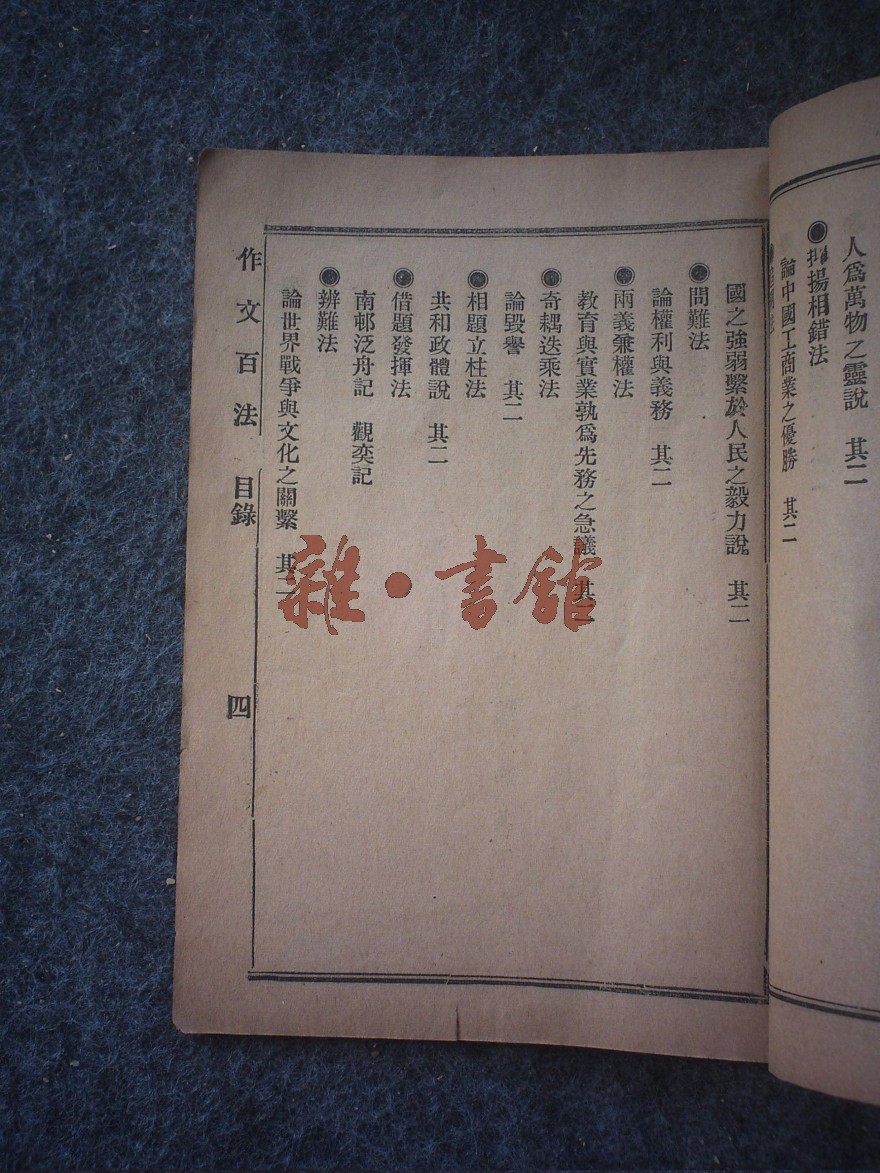 人爲萬物之靈說　其二
揚相錯法
論中國工商業之優勝　其二
國之強弱繫於人民之毅力說　其二
問難法
論權利與義務　其二
兩義兼權法
教育與實業孰爲先務之急議　其二
奇耦迭乘法
論毀譽　其二
相題立柱法
共和政體說　其二
借題發揮法
南邨泛舟記　觀奕記
辨難法
論世界戰爭與文化之關繫　其二
作文百法　目錄　四
雜·書館